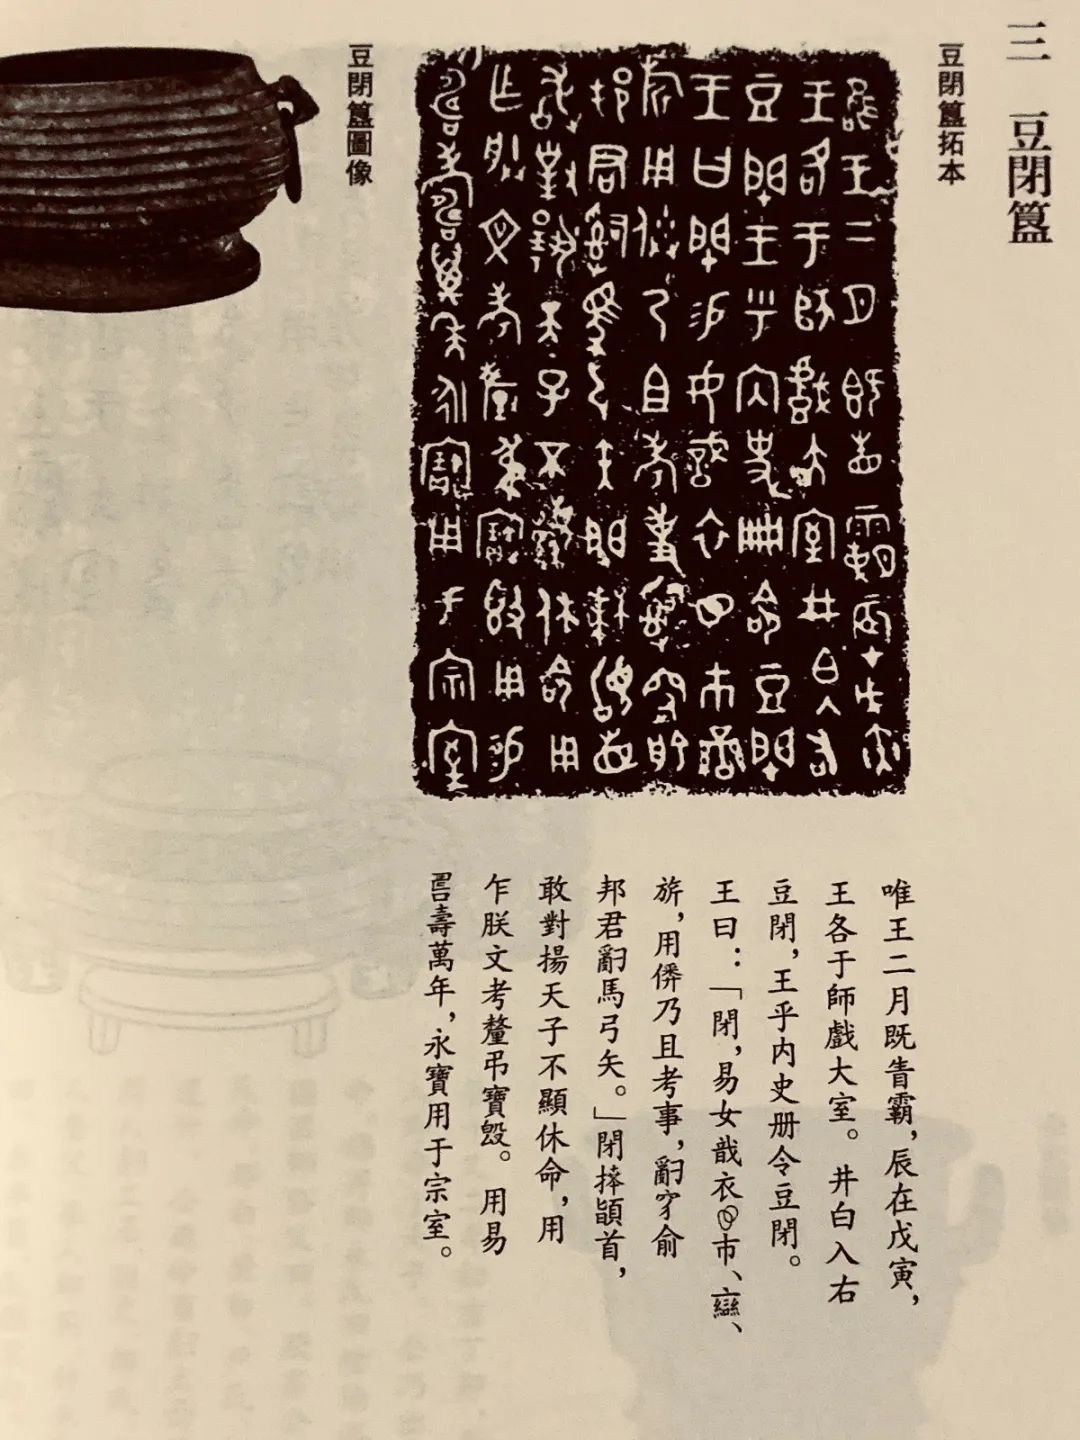 三 豆閉簋
豆閉簋拓本
豆閉簋圖像
唯王二月既眚霸，辰在戊寅，
王各于師戲大室。井白入右
豆閉，王乎內史册令豆閉。
王曰：「閉，易女戠衣市、䜌、
旂，用侪乃且考事，𤔲俞
邦君𤔲馬弓矢。」閉𢱭䭫首，
敢對揚天子不顯休命，用
乍朕文考釐弔寶𣪘。用易
壽萬年，永寶用于宗室。